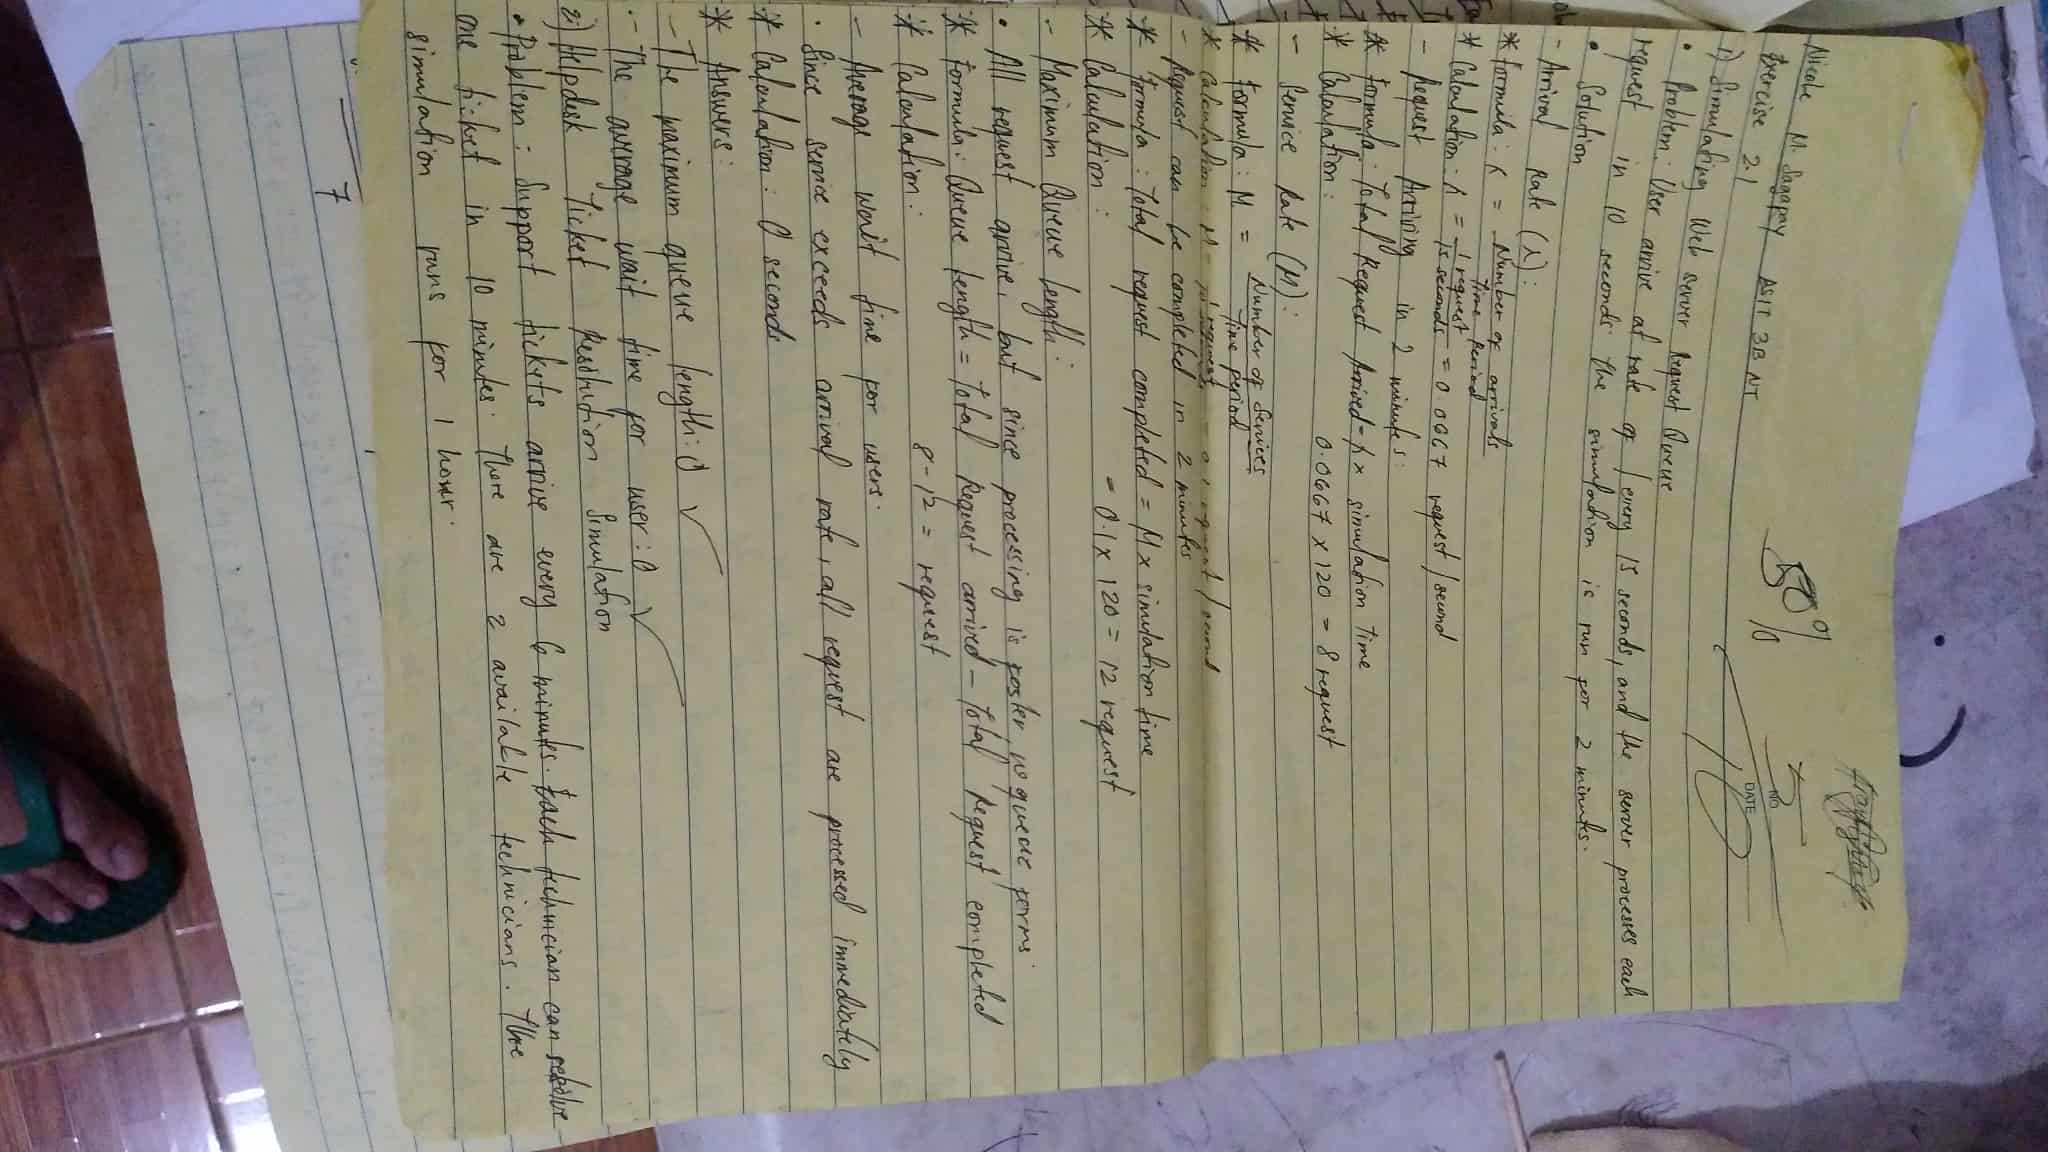 Nicole M. Sagapay BSIT 3B NT
Exercise 2.1
50%
NO.
DATE
1) Simulating Web server Request Queue
• Problem: User arrive at rate of 1 every 15 seconds, and the server processes each
request in 10 seconds. The simulation is run for 2 minutes.
• Solution
- Arrival Rate (λ):
* Formula: λ = Number of arrivals
Time Period
* Calculation: λ = 1 request
15 seconds = 0.0667 request/second
- Request Arriving in 2 minutes:
* Formula: Total Request Arrived = λ x simulation time
* Calculation:
0.0667 x 120 = 8 request
- Service Rate (M):
* Formula: M = Number of Services
Time period
* Calculation: M = request = 0.1 request/second
- Request can be completed in 2 minutes
* Formula: Total request completed = M x simulation time
* Calculation:
= 0.1 x 120 = 12 request
- Maximum Queue length:
• All request arrive, but since processing is faster no queue forms.
* Formula: Queue length = Total Request arrived - Total Request completed
* Calculation:
8-12 = request
- Average wait time for users.
• Since service exceeds arrival rate, all request are processed immediately
* Calculation: 0 seconds
* Answers:
- The maximum queue length: 0 ✓
- The average wait time for user: 0 ✓
2) Helpdesk Ticket Resolution Simulation
• Problem: Support tickets arrive every 6 minutes. Each technician can resolve
one ticket in 10 minutes. There are 2 available technicians. The
simulation runs for 1 hour.
7